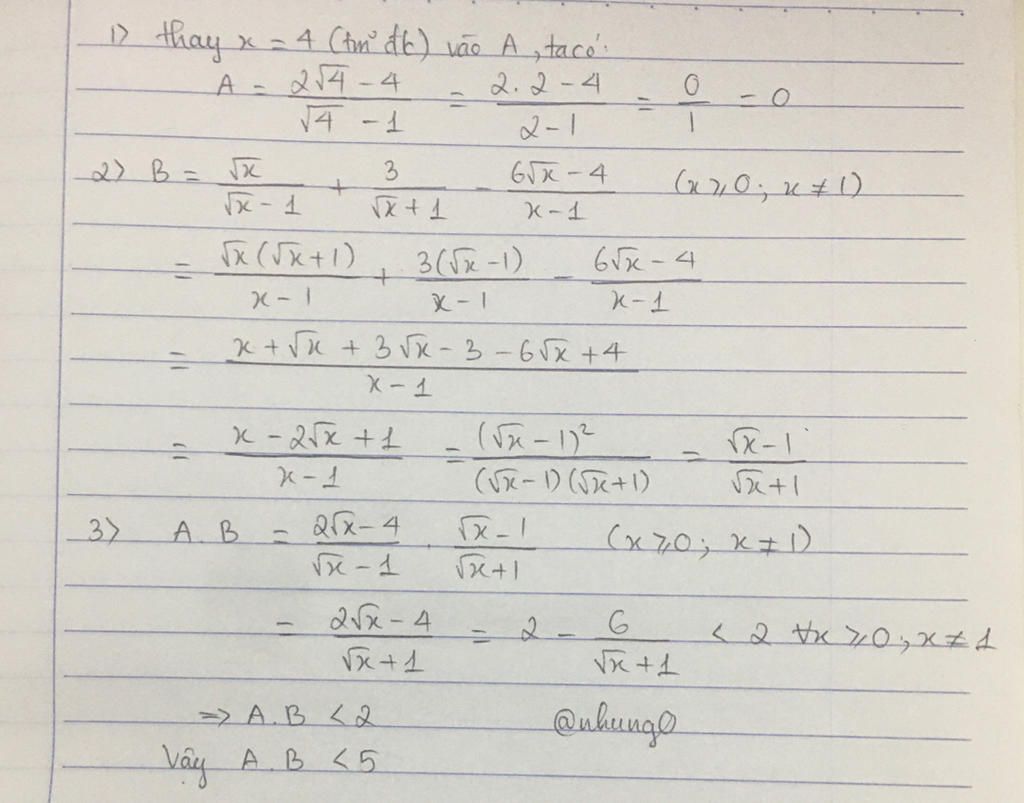 1) thay x = 4 (tm đk) vào A, ta có:
A = (2√4 - 4)/(√4 - 1) = (2.2 - 4)/(2 - 1) = 0/1 = 0
2) B = √x/(√x - 1) + 3/(√x + 1) - (6√x - 4)/(x - 1) (x ⩾ 0; x ≠ 1)
= √x(√x + 1)/(x - 1) + 3(√x - 1)/(x - 1) - (6√x - 4)/(x - 1)
= (x + √x + 3√x - 3 - 6√x + 4)/(x - 1)
= (x - 2√x + 1)/(x - 1) = (√x - 1)²/((√x - 1)(√x + 1)) = (√x - 1)/(√x + 1)
3) A.B = (2√x - 4)/(√x - 1) . (√x - 1)/(√x + 1) (x ⩾ 0; x ≠ 1)
= (2√x - 4)/(√x + 1) = 2 - 6/(√x + 1) < 2 ∀x ⩾ 0; x ≠ 1
=> A.B < 2 @nhung0
Vậy A.B < 5